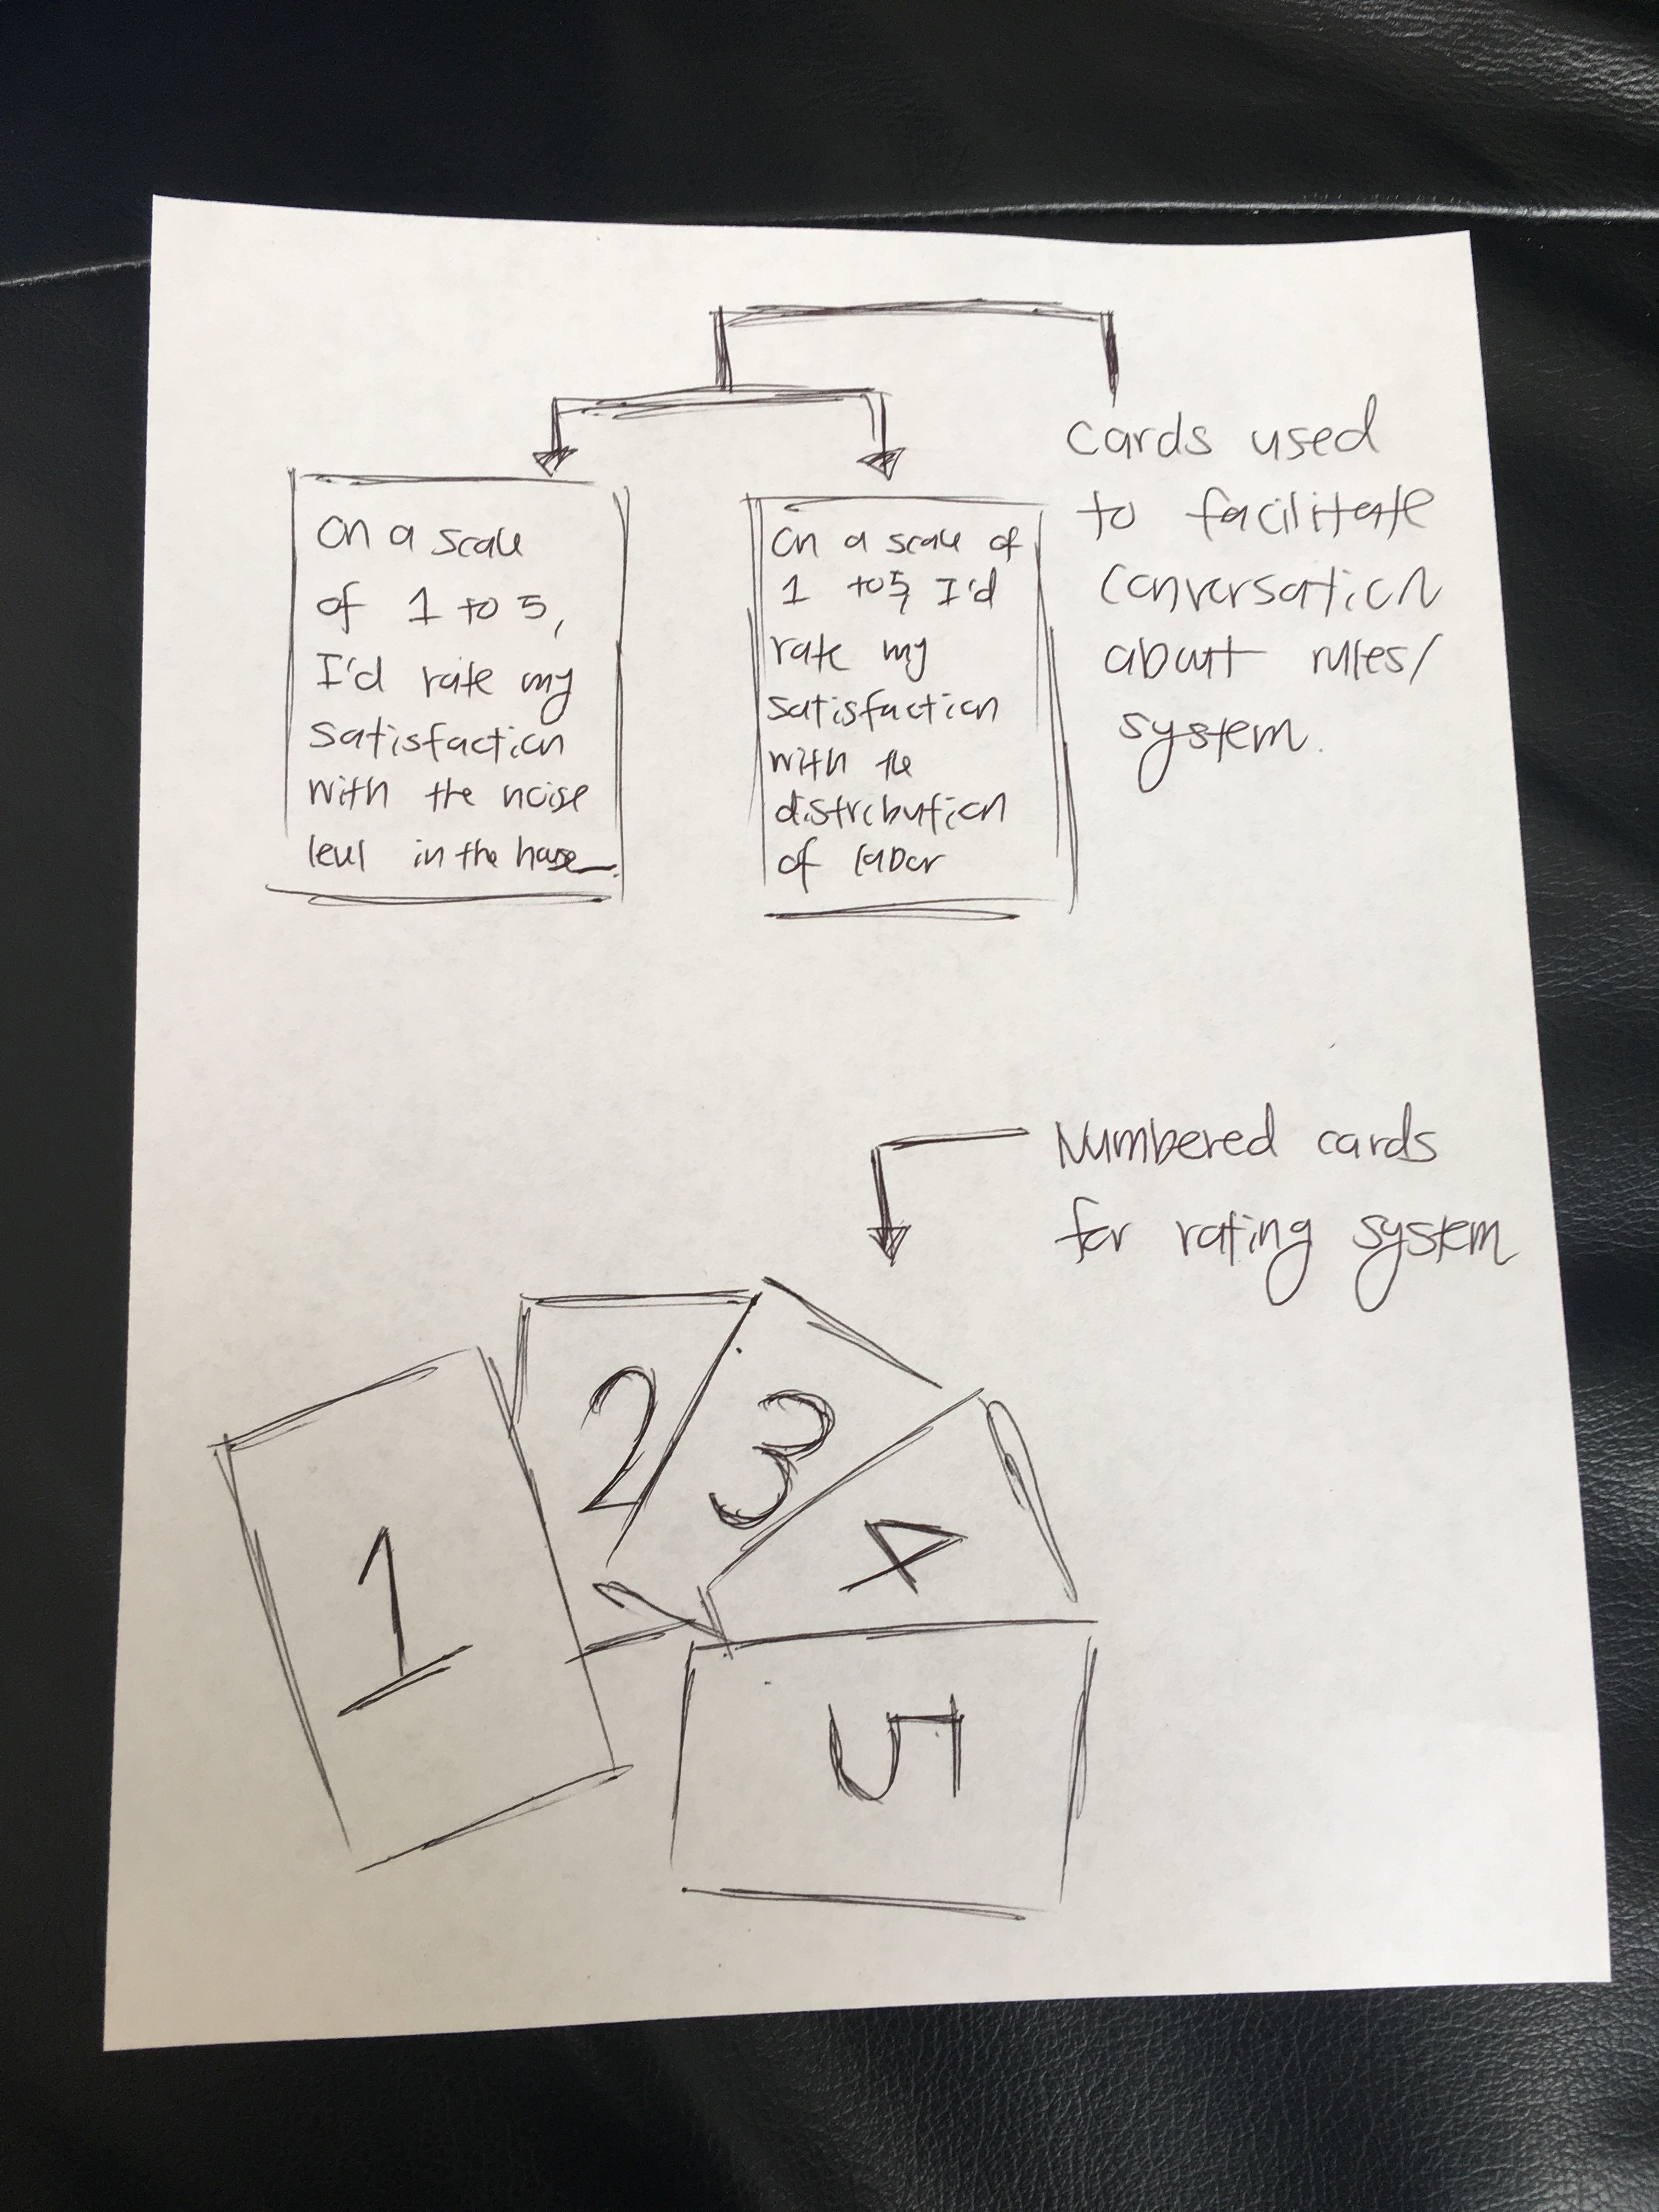 On a scale
of 1 to 5,
I'd rate my
satisfaction
with the noise
level in the house_.
On a scale of
1 to 5, I'd
rate my
satisfaction
with the
distribution
of labor
cards used
to facilitate
conversation
about rules/
system.
Numbered cards
for rating system
1
2
3
4
5